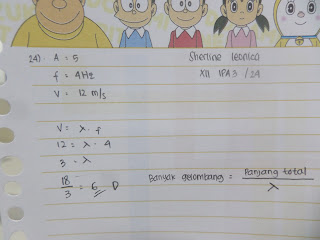 24) A = 5
Sherline leonica
f = 4Hz
XII IPA 3 / 24
V = 12 m/s
V = λ . f
12 = λ . 4
3 = λ
18/3 = 6 D
Banyak gelombang = Panjang total / λ